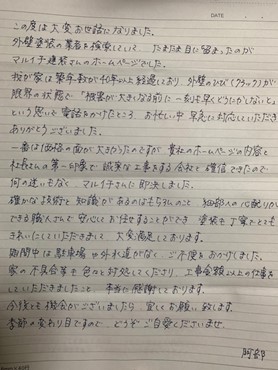 DATE
この度は大変お世話になりました。
外壁塗装の業者を検索していて、たまたま目に留まったのが
マルイチ建装さんのホームページでした。
我が家は築年数が10年以上経過しており、外壁のひび(クラック)が
限界の状態で「被害が大きくなる前に一刻も早くどうにかしないと」
という思いで電話をかけたところ、お忙しい中早急に対応していただき
ありがとうございました。
一番は価格の面が大きかったですが、貴社のホームページの内容と
社長さんの第一印象で、誠実な工事をする会社と確信できたので
何の迷いもなく、マルイチさんに即決しました。
確かな技術と知識があるのはもちろんのこと、細部への心配りが
できる職人さんで安心してお任せすることができ、塗装も丁寧でとても
きれいにしていただきまして、大変満足しております。
期間中は駐車場や外水道がなく、ご不便をおかけしました。
家の不具合等も色々と対処してくださり、工事金額以上の仕事を
していただきましたこと、本当に感謝しております。
今後とも機会がございましたら、宜しくお願い致します。
季節の変わり目ですので、どうぞご自愛くださいませ。
阿部